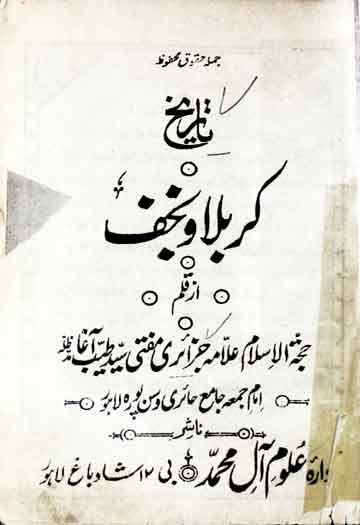 جملہ حقوق محفوظ
تاریخ
کربلا و نجف
از قلم
حجۃ الاسلام علامہ جزائری مفتی سید طیب آغا مدظلہ
امام جمعہ جامع حائری وسن پورہ لاہور
ناشر
دارۂ علوم آل محمدؐ بی ۱۲ شاد باغ لاہور